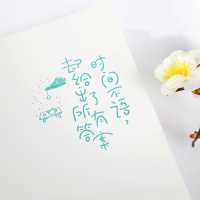 时间不语，
却给出了所有答案